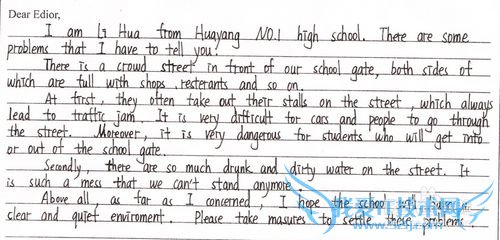 Dear Edior,
I am Li Hua from Huayang NO.1 high school. There are some
problems that I have to tell you.
There is a crowd street in front of our school gate, both sides of
which are full with shops, resterants and so on.
At first, they often take out their stalls on the street, which always
lead to traffic jam. It is very difficult for cars and people to go through
the street. Moreover, it is very dangerous for students who will get into
or out of the school gate.
Secondly, there are so much drunk and dirty water on the street. It
is such a mess that we can't stand anymore.
Above all, as far as I concerned, I hope the school will
clear and quiet enviroment. Please take masures to settle these problems